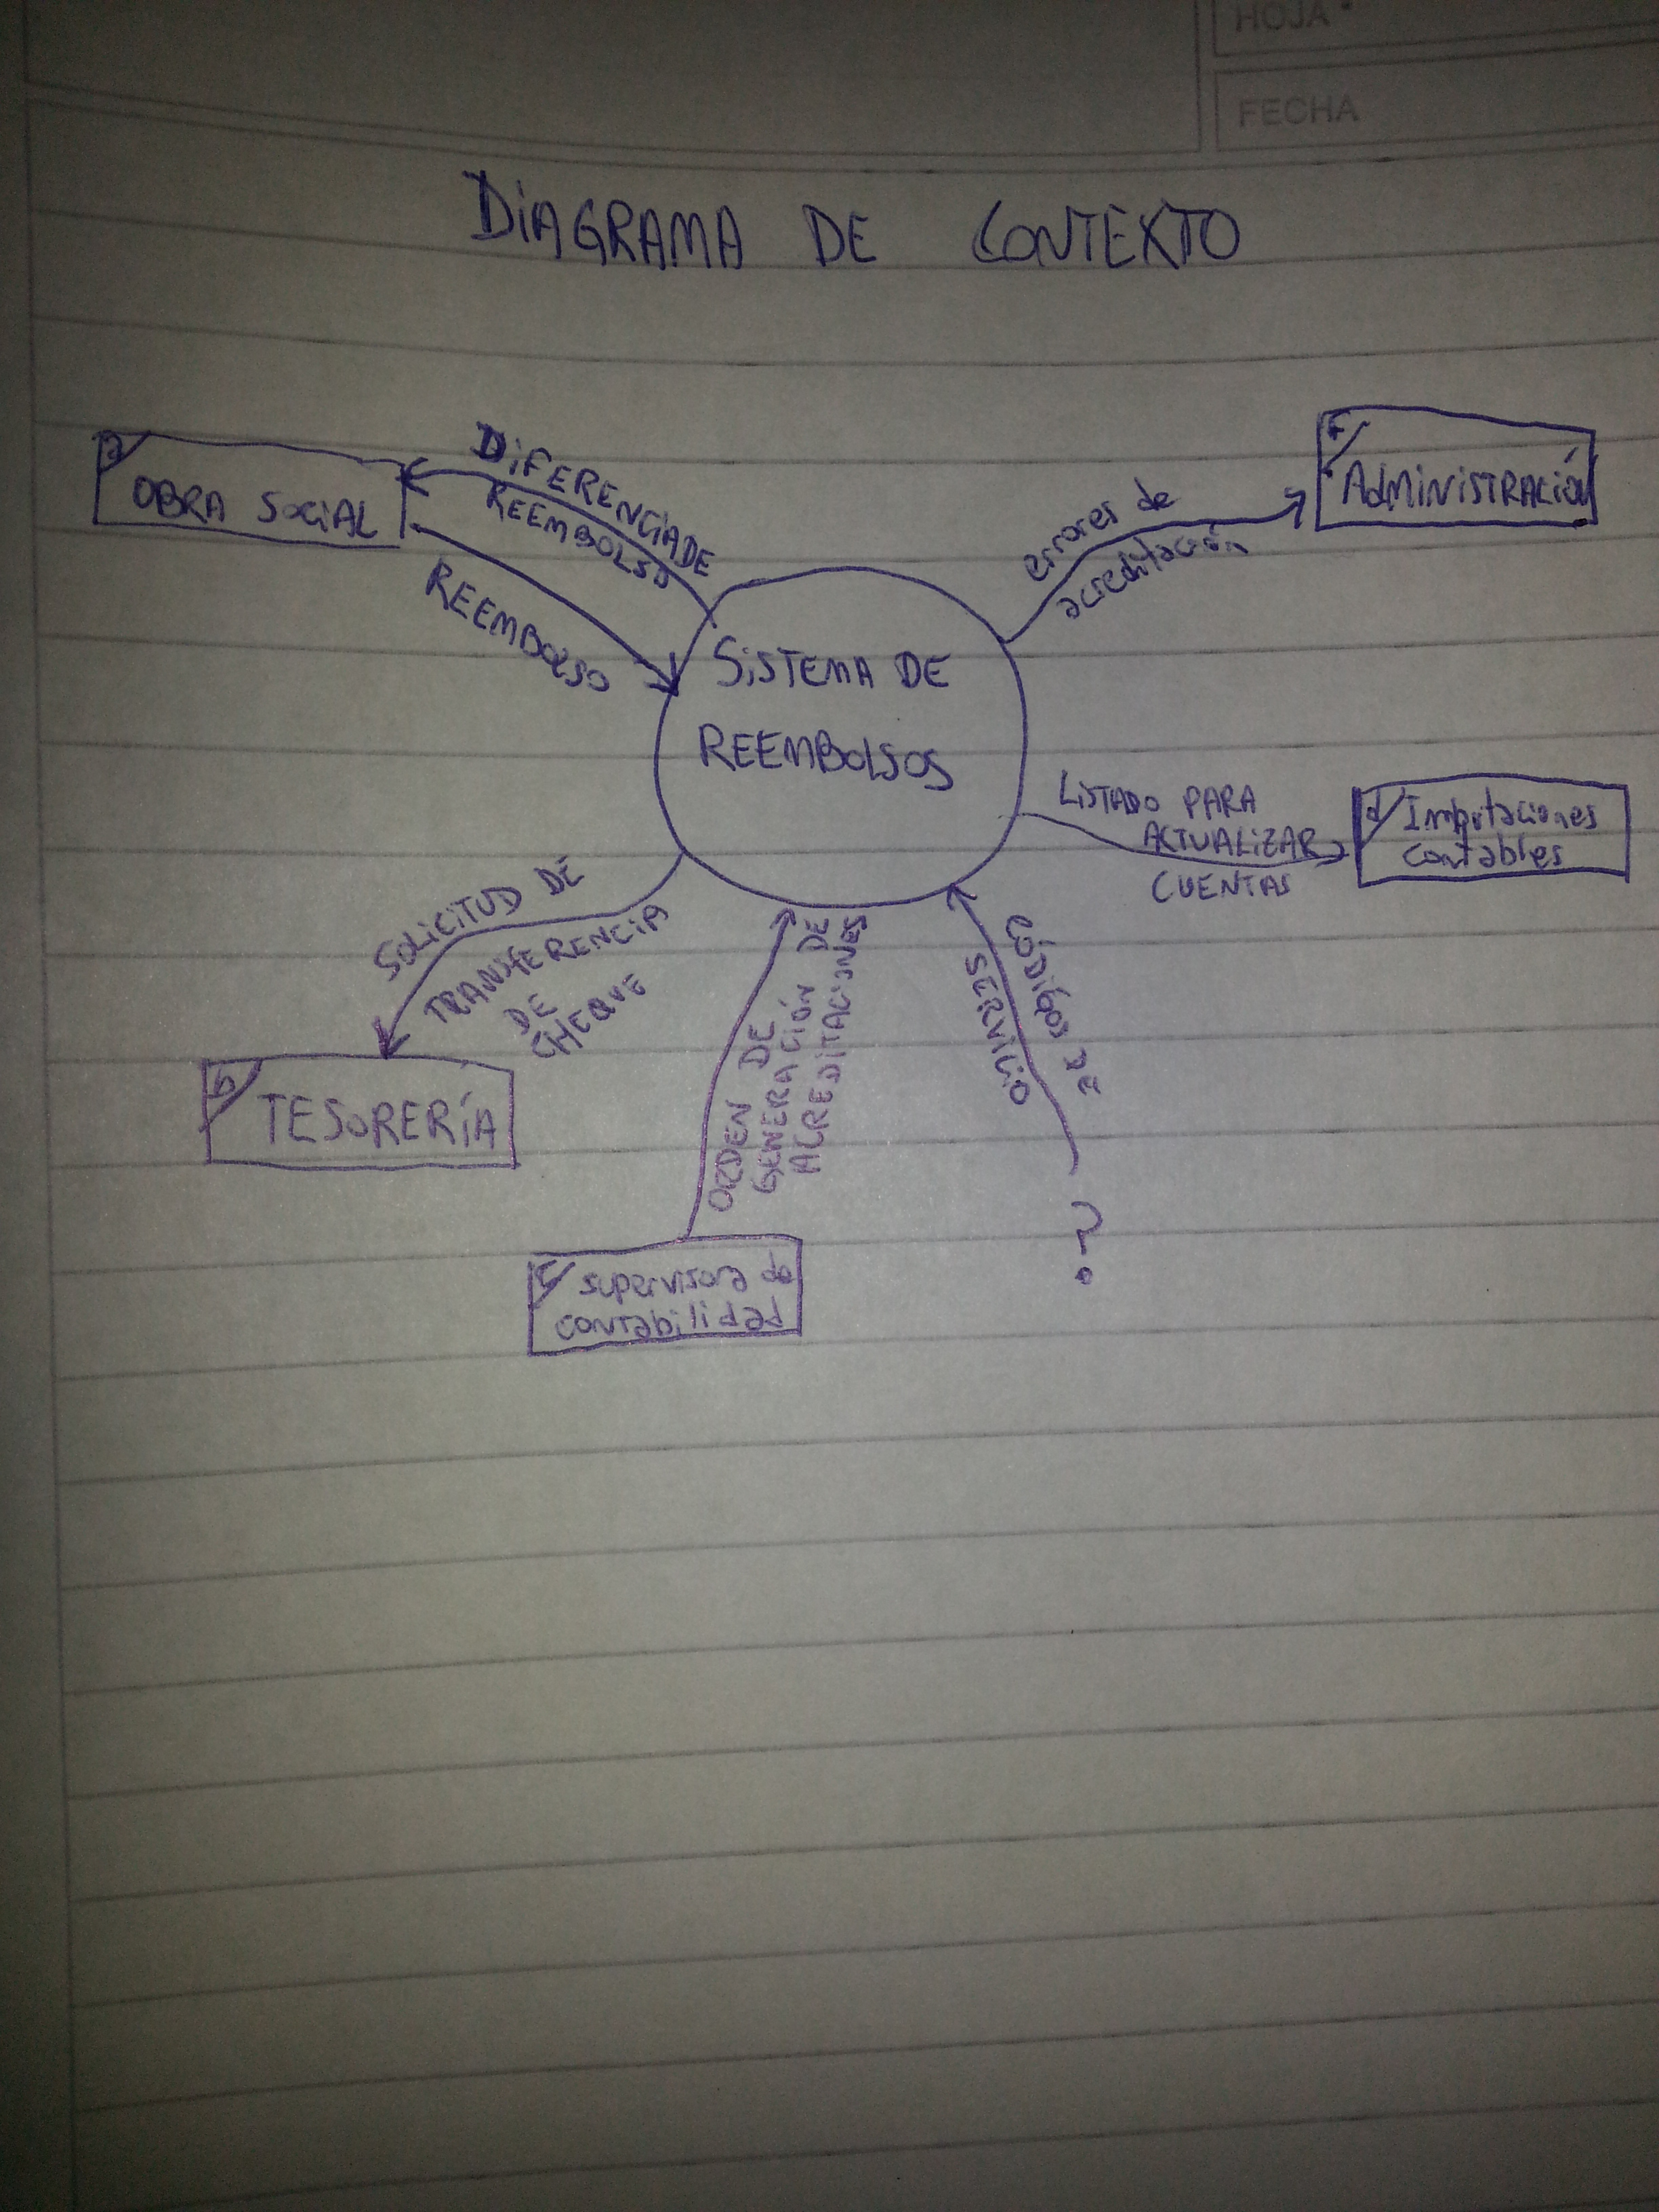 HOJA
FECHA
DIAGRAMA DE CONTEXTO
a
OBRA SOCIAL
DIFERENCIA DE
REEMBOLSO
REEMBOLSO
errores de
acreditación
ADMINISTRACIÓN
SISTEMA DE
REEMBOLSOS
LISTADO PARA
ACTUALIZAR
CUENTAS
d
Imputaciones
contables
SOLICITUD DE
TRANSFERENCIA
DE
CHEQUE
b
TESORERÍA
ORDEN DE
GENERACIÓN DE
ACREDITACIONES
c
supervisora de
contabilidad
CÓDIGOS DE
SERVICIO
?